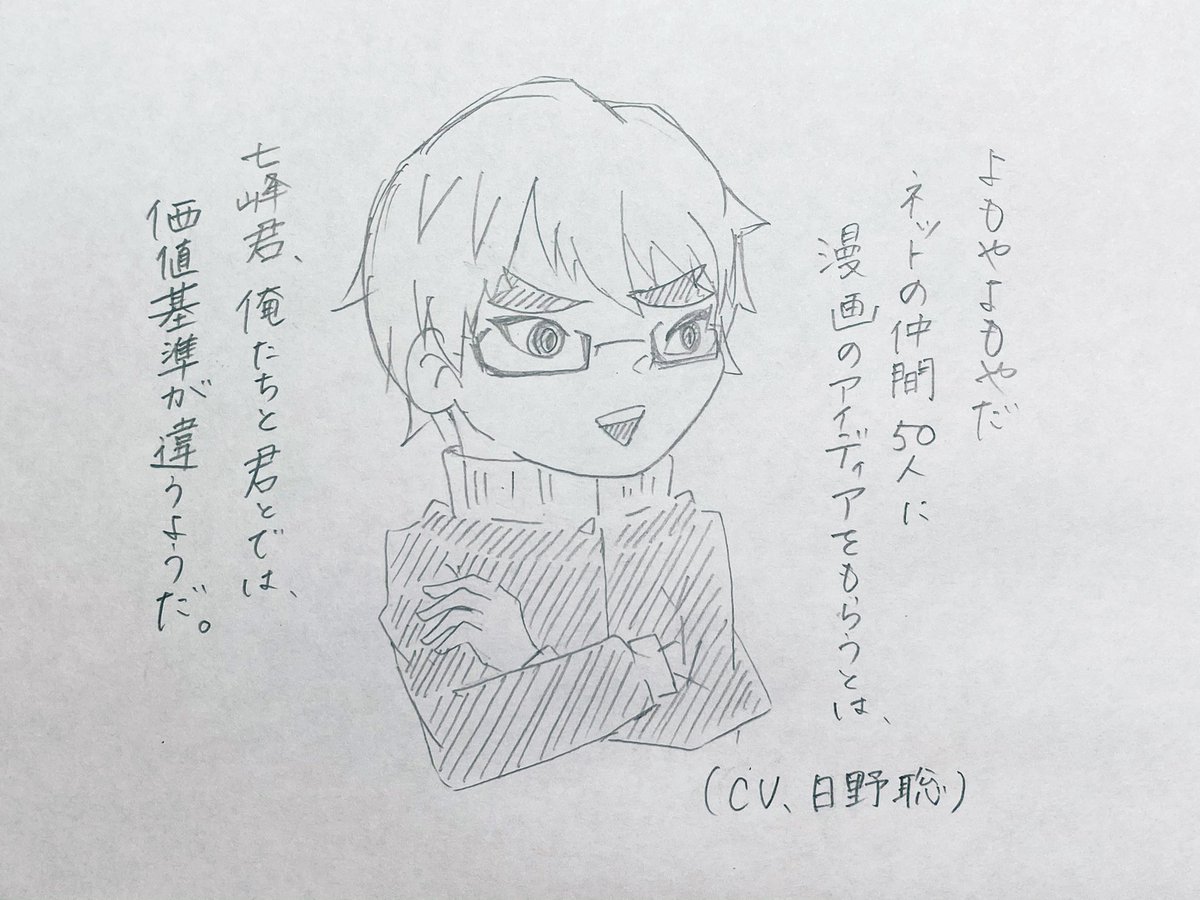 よもやよもやだ
ネットの仲間50人に
漫画のアイディアをもらうとは、
七峰君、俺たちと君とでは、
価値基準が違うようだ。
(CV、日野聡)